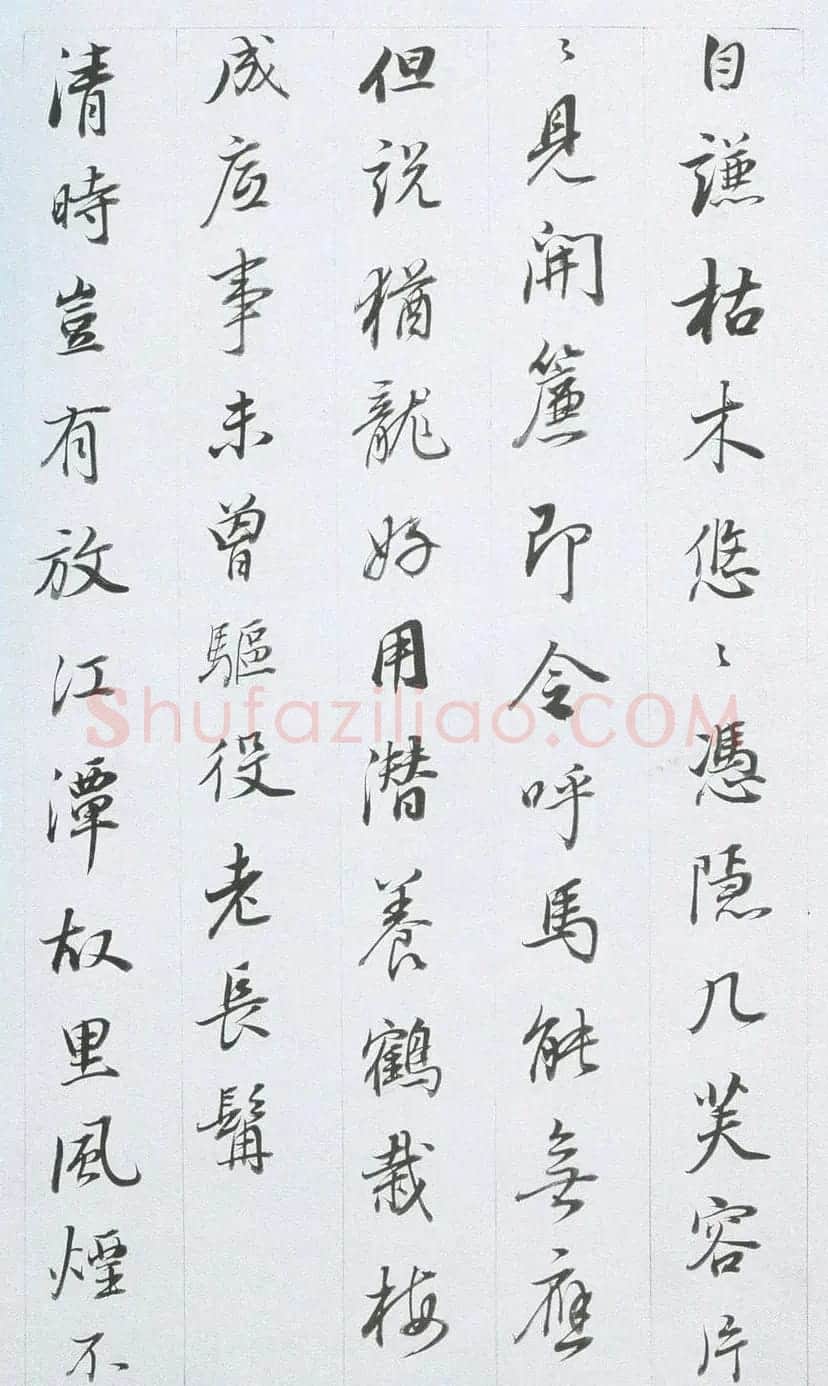 自謙枯木悠〻憑隱几芙容片
〻見開簾即令呼馬能無應
但說猶龍好用潜養鶴栽梅
成虚事未曾驅役老長髯
清時豈有放江潭故里風煙不
Shufaziliao.COM